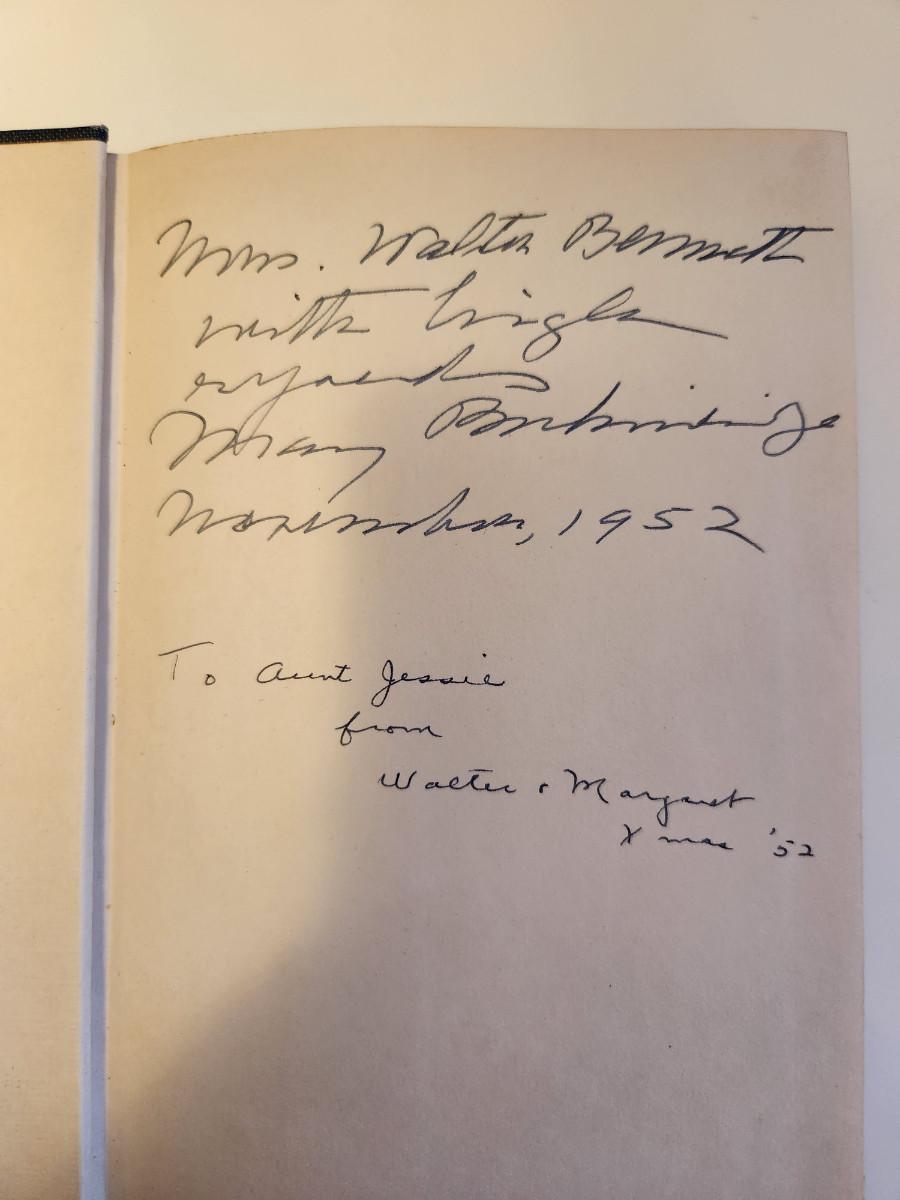 Mrs. Walter Bennett
with
regards
Mary Breckinridge
November, 1952
To Aunt Jessie
from
Walter & Margaret
Xmas '52